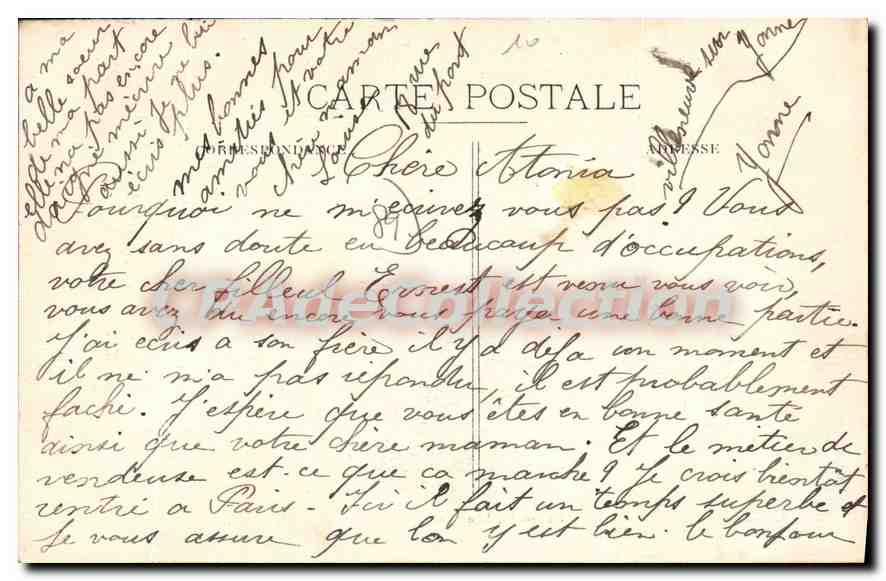 CARTE POSTALE
CORRESPONDANCE
ADRESSE
Chère Atonia
Pourquoi ne m'ecrivez vous pas? Vous
avez sans doute eu beaucoup d'occupations,
votre cher filleul Ernest est venu vous voir,
vous avez du encore vous payer une bonne partie.
J'ai ecris a son frère il y a deja un moment et
il ne m'a pas répondu, il est probablement
faché. J'espère que vous êtes en bonne santé
ainsi que votre chère maman. Et le métier de
vendeuse est-ce que ca marche? Je crois bientôt
rentré a Paris - Ici il fait un temps superbe et
je vous assure que l'on y est bien. le bonjour
a ma
belle soeur
de ma part
elle n'a pas encore
daigné m'écrire
aussi je ne lui
écris plus.
mes bonnes
amitiés pour
vous et votre
chère maman
Louise
8 rue
du pont
villeneuve sur
Yonne
Yonne
89
10
L'Art de Collection